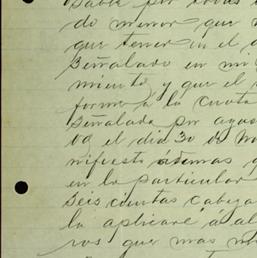 sabla por todas
do menor, que
que tener en el
señalado en mi
miento, y que el
forme a la cuota
señalada por
el dia 30 de
nifesto ademas q
en la particular
seis cuotas cabeza
la aplicaré á al
ros que mas